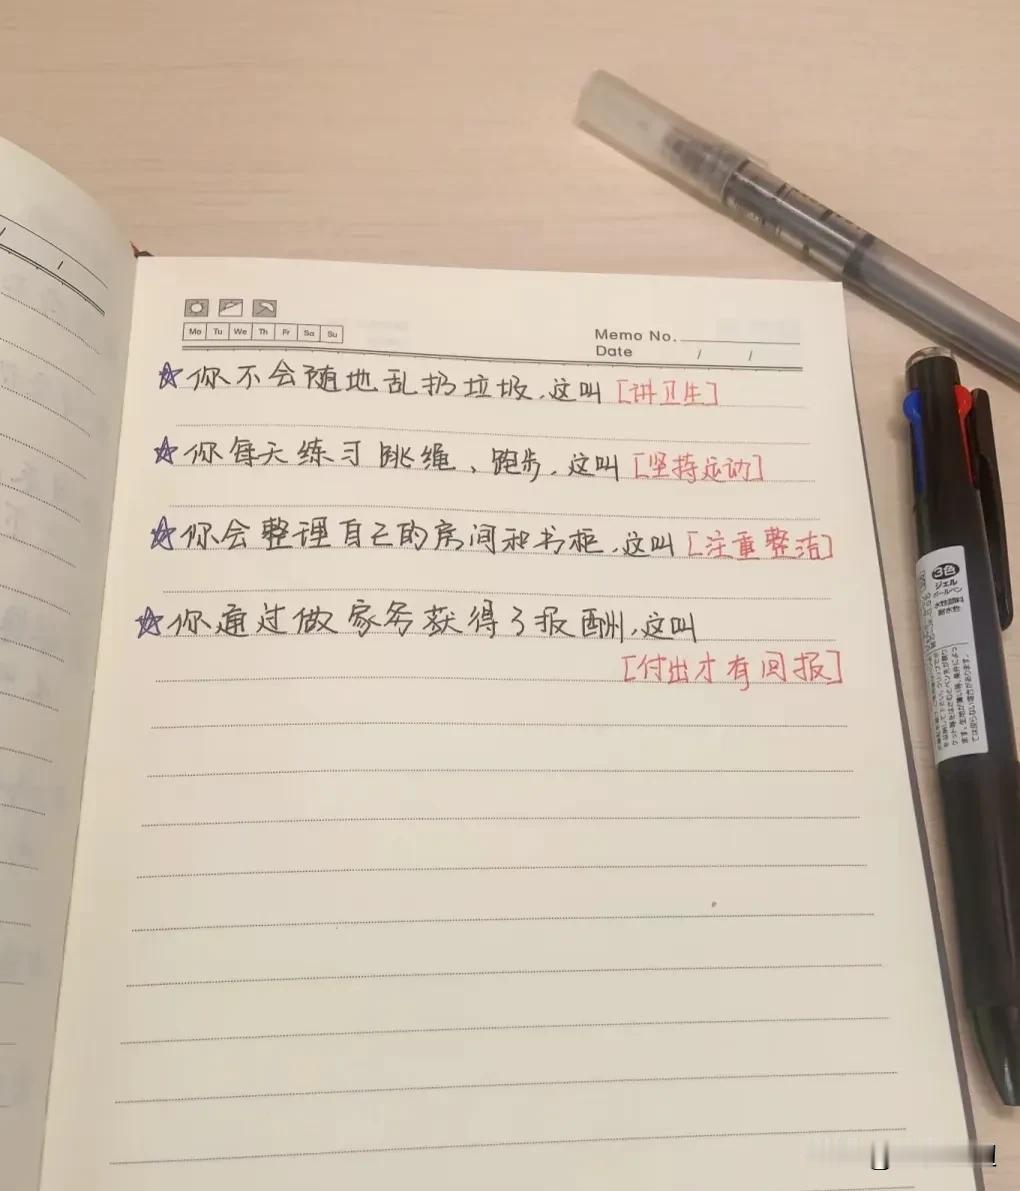 Mo Tu We Th Fr Sa Su
Memo No.
Date / /
☆你不会随地乱扔垃圾,这叫[讲卫生]
☆你每天练习跳绳、跑步,这叫[坚持运动]
☆你会整理自己的房间和书柜,这叫[注重整洁]
☆你通过做家务获得了报酬,这叫
[付出才有回报]
3色
ジェル
ボールペン